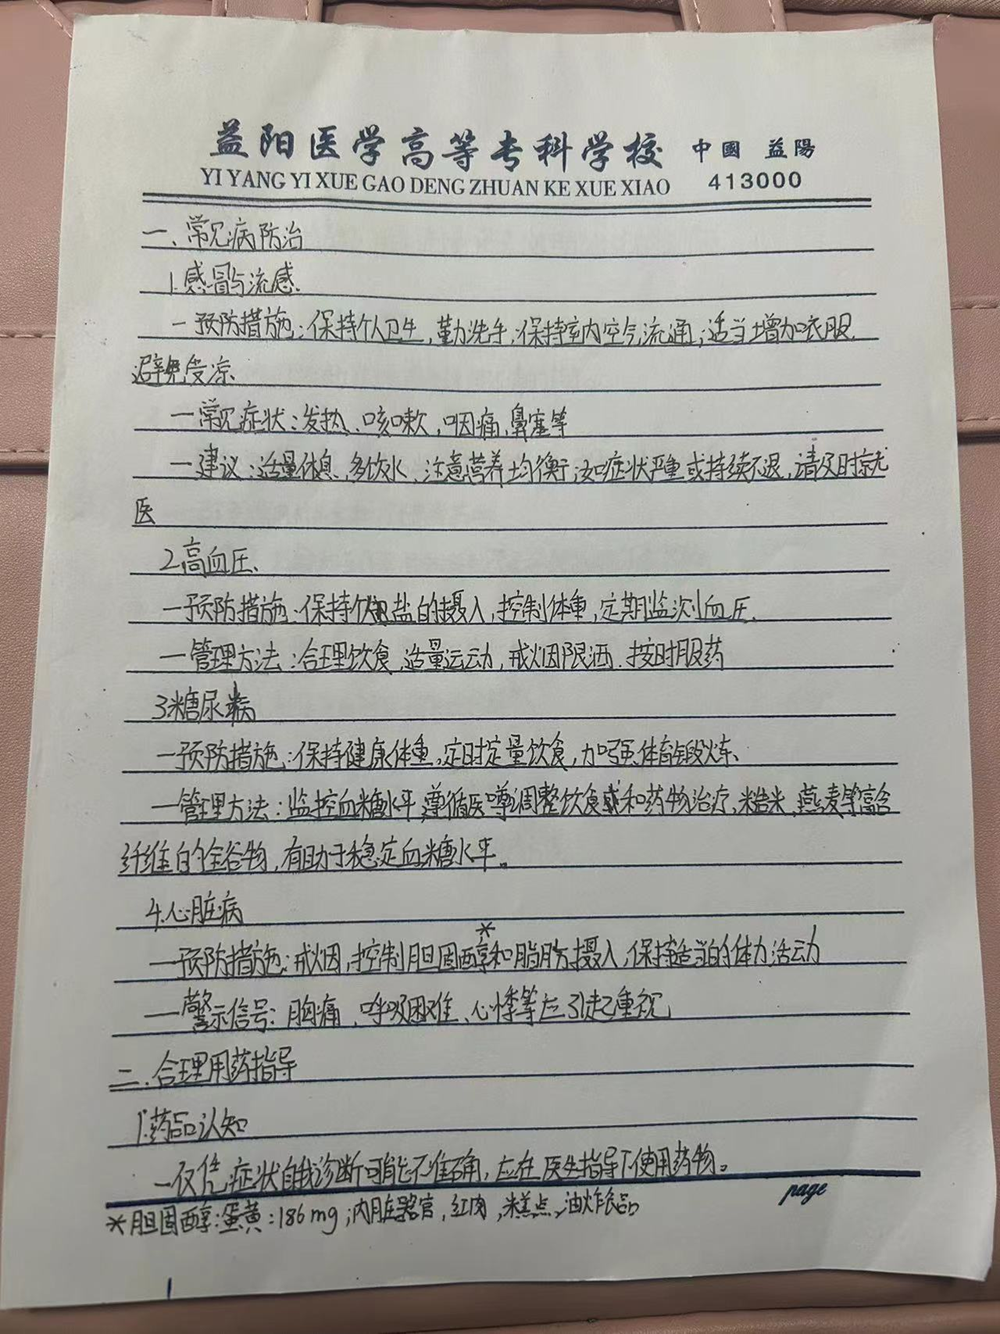 益阳医学高等专科学校 中國 益陽
YI YANG YI XUE GAO DENG ZHUAN KE XUE XIAO 413000
一、常见病防治
1.感冒与流感
一预防措施：保持个人卫生，勤洗手，保持室内空气流通；适当增加衣服，
避免受凉
一常见症状：发热、咳嗽，咽痛，鼻塞等
一建议：适量休息，多饮水，注意营养均衡；如症状严重或持续不退，请及时就
医
2.高血压
一预防措施：保持低盐的摄入，控制体重，定期监测血压
一管理方法：合理饮食，适量运动，戒烟限酒，按时服药
3.糖尿病
一预防措施：保持健康体重，定时定量饮食，加强体育锻炼
一管理方法：监控血糖水平，遵循医嘱调整饮食或和药物治疗，糙米，燕麦等高含
纤维的全谷物，有助于稳定血糖水平。
4.心脏病
*
一预防措施：戒烟，控制胆固醇和脂肪摄入，保持适当的体力活动
一警示信号：胸痛，呼吸困难、心悸等应引起重视
二、合理用药指导
1.药品认知
一仅凭症状自我诊断可能不准确，应在医生指导下使用药物。
page
*胆固醇：蛋黄：186mg；内脏器官，红肉，糕点，油炸食品